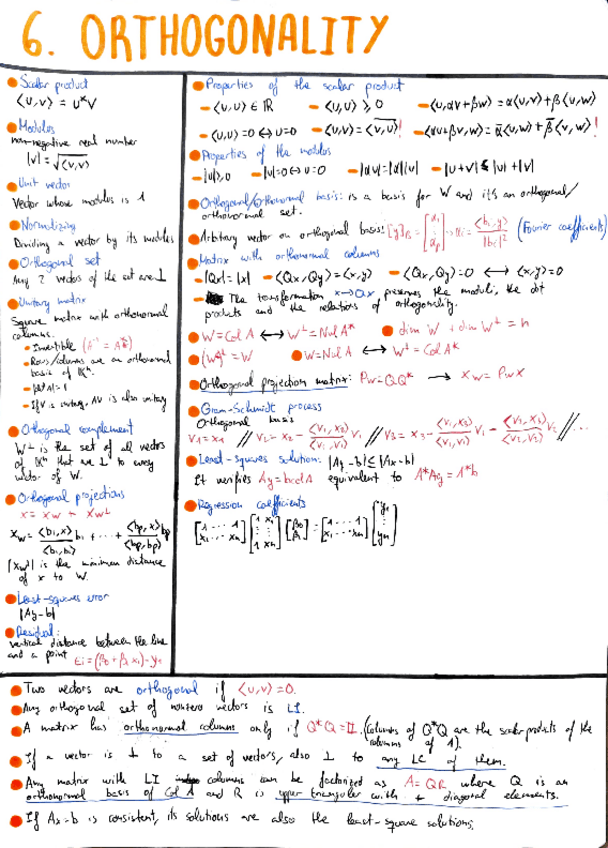 6. ORTHOGONALITY
Scalar product
⟨u,v⟩ = u*v
Modulus
non-negative real number
|v| = √⟨v,v⟩
Unit vector
Vector whose modulus is 1
Normalizing
Dividing a vector by its modulus
Orthogonal set
Any 2 vectors of the set are ⊥
Unitary matrix
Square matrix with orthonormal
columns.
• Invertible (A⁻¹ = A*)
• Rows/columns are an orthonormal
basis of ℝⁿ.
- If v is unitary, Av is also unitary
Orthogonal complement
W⊥ is the set of all vectors
of ℝⁿ that are ⊥ to every
vector of W.
Orthogonal projections
x = xw + xw⊥
xw = ⟨b1,x⟩/⟨b1,b1⟩ b1 + ... + ⟨bp,x⟩/⟨bp,bp⟩ bp
|xw⊥| is the minimum distance
of x to W.
Least-squares error
|Ay-b|
Residual:
vertical distance between the line
and a point εi = (β0 + β1 x1) - y1
Properties of the scalar product
- ⟨u,u⟩ ∈ ℝ - ⟨u,u⟩ ≥ 0 - ⟨u,αv+βw⟩ = α⟨u,v⟩ + β⟨u,w⟩
- ⟨u,u⟩=0 ⟺ u=0 - ⟨u,v⟩ = ⟨v,u⟩‾ ! - ⟨αu+βv,w⟩ = ᾱ⟨u,w⟩ + β̄⟨v,w⟩ !
Properties of the modulus
- |u| ≥ 0 - |u|=0 ⟺ u=0 - |αu|=|α||u| - |u+v| ≤ |u|+|v|
Orthogonal/Orthonormal basis: is a basis for W and it's an orthogonal/
orthonormal set.
Arbitary vector on orthogonal basis: [y]B = [α1 ⋮ αp] → αi = ⟨bi,y⟩/|bi|² (Fourier coefficients)
Matrix with orthonormal columns
- |Qx|=|x| - ⟨Qx,Qy⟩=⟨x,y⟩ - ⟨Qx,Qy⟩=0 ⟷ ⟨x,y⟩=0
- The transformation x→Qx preserves the moduli, the dot
products and the relations of orthogonality.
W=Col A ⟷ W⊥=Nul A* dim W + dim W⊥ = n
(W⊥)⊥ = W W=Nul A ⟷ W⊥=Col A*
Orthogonal projection matrix: Pw=QQ* → xw = Pw x
Gram-Schmidt process
Orthogonal basis
v1 = x1 // v2 = x2 - ⟨v1,x2⟩/⟨v1,v1⟩ v1 // v3 = x3 - ⟨v1,x3⟩/⟨v1,v1⟩ v1 - ⟨v2,x3⟩/⟨v2,v2⟩ v2 //...
Least-squares solution: |Ay-b| ≤ |Ax-b|
It verifies equivalent to A*Ay = A*b
Regression coefficients
[1 ... 1 / x1 ... xn] [1 x1 ⋮ 1 xn] [β0 β1] = [1 ... 1 / x1 ... xn] [y1 ⋮ yn]
Two vectors are orthogonal if ⟨u,v⟩=0.
Any orthogonal set of nonzero vectors is LI.
A matrix has orthonormal columns only if Q*Q=I. (columns of Q*Q are the scalar products of the
columns of A).
If a vector is ⊥ to a set of vectors, also ⊥ to any LC of them.
Any matrix with LI columns can be factorized as A=QR where Q is an
orthonormal basis of Col A and R is upper triangular with + diagonal elements.
If Ax=b is consistent, its solutions are also the least-square solutions.